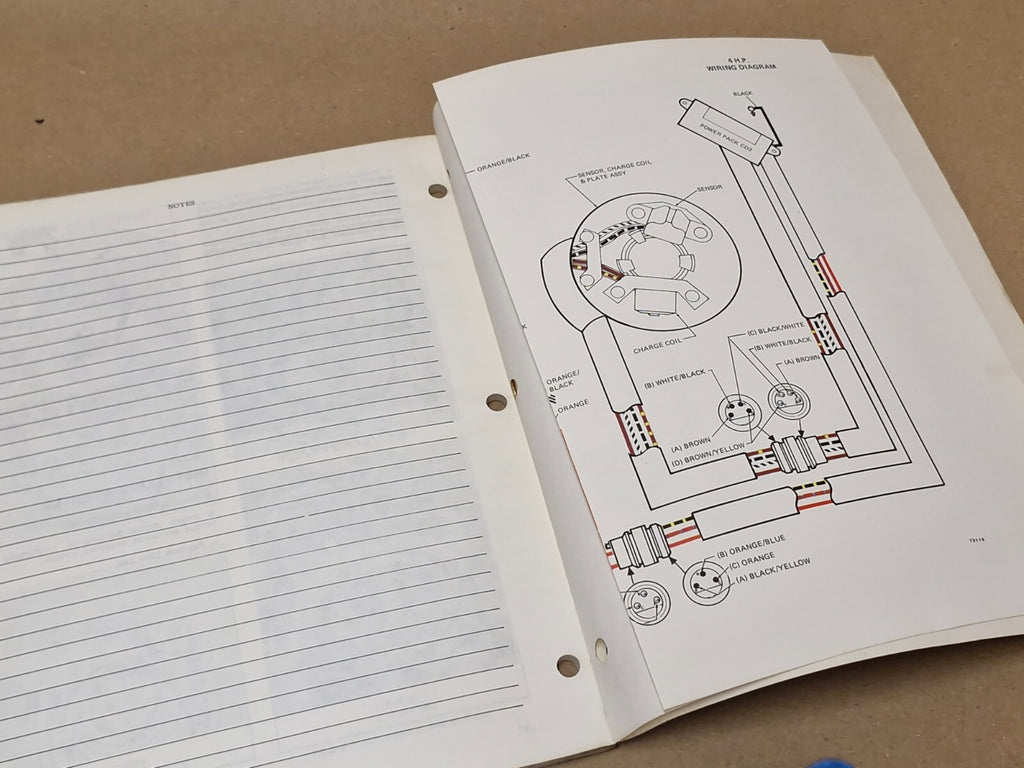 NOTES
4 H.P.
WIRING DIAGRAM
BLACK
POWER PACK CD2
ORANGE/BLACK
SENSOR, CHARGE COIL
& PLATE ASSY
SENSOR
CHARGE COIL
(C) BLACK/WHITE
(B) WHITE/BLACK
(A) BROWN
(B) WHITE/BLACK
ORANGE/
BLACK
ORANGE
(A) BROWN
(D) BROWN/YELLOW
(B) ORANGE/BLUE
(C) ORANGE
(A) BLACK/YELLOW